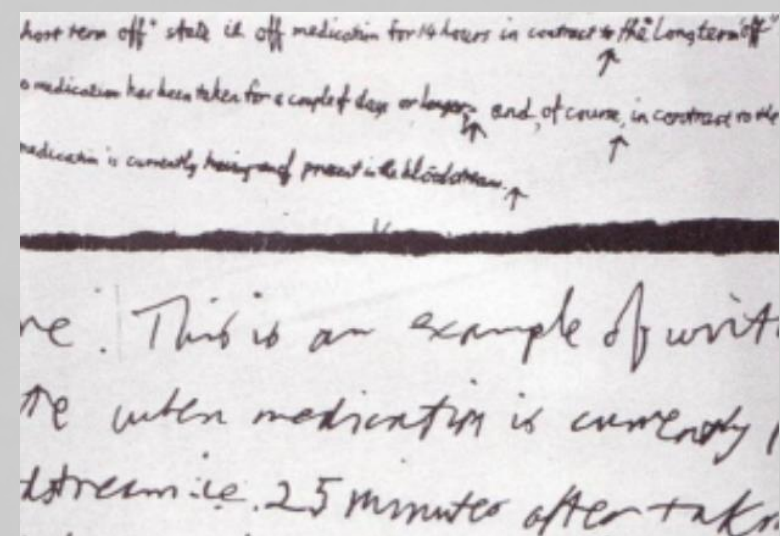 hort term off" state ie off medication for 14 hours in contrast to the long term "off"
o medication has been taken for a couple of days or longer, and, of course, in contrast to the
medication is currently present in the bloodstream.
re. This is an example of writ
te when medication is currently
dstream i.e. 25 minutes after taken